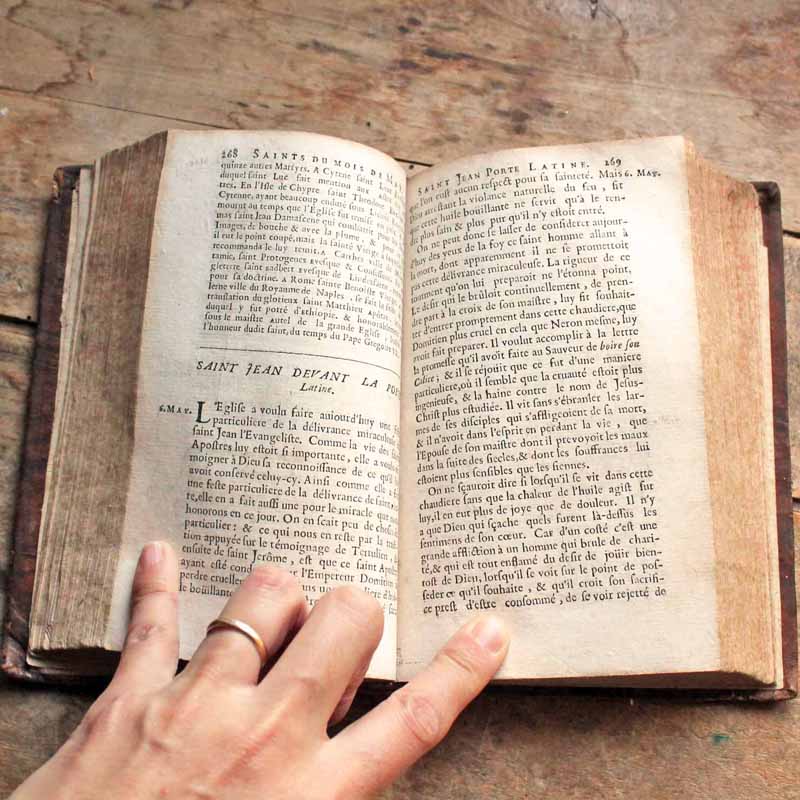 268 SAINTS DU MOIS DE MAY.
quinze autres Martyrs. A Cyrene saint
duquel saint Luc fait mention aux
tres. En l'Isle de Chypre saint Theodore
Cyrenne, ayant beaucoup enduré sous
mourut au temps que l'Eglise fut
mas saint Jean Damascene qui
Images, de bouche & avec la plume, &
il eut le point coupé, mais la sainte Vierge
recommandé le luy remit. A Carrhes
tamie, saint Protogenes Evesque & Confesseur
gleterre saint Eadbert Evesque de
pour sa doctrine. A Rome sainte Benoiste
lerne ville du Royaume de Naples, se fait la
translation du glorieux saint Matthieu
duquel y fut porté d'Ethiopie, & honorablement
sous le maistre autel de la grande Eglise,
l'honneur dudit saint, du temps du Pape
SAINT JEAN DEVANT LA
Latine.
6. MAY. L'Eglise a voulu faire aujourd'huy une
particuliere de la délivrance miraculeuse
saint Jean l'Evangeliste. Comme la vie des
Apostres luy estoit si importante, elle a voulu
moigner à Dieu sa reconnoissance de ce qu'il
avoit conservé celuy-cy. Ainsi comme elle
une feste particuliere de la délivrance de saint
te, elle en a fait aussi une pour le miracle que
honorons en ce jour. On en sçait peu de choses
particulier: & ce qui nous en reste par la
tion appuyée sur le témoignage de Tertulien,
ensuite de saint Jerôme, est que ce saint
ayant esté l'Empereur
perdre cruelle d'
le boüillante
SAINT JEAN PORTE LATINE. 269
que l'on eust aucun respect pour sa sainteté. Mais 6. MAY.
Dieu arrestant la violance naturelle du feu, fit
que cette huile bouillante ne servit qu'à le ren-
dre plus sain & plus pur qu'il n'y estoit entré.
On ne peut donc se lasser de considerer aujour-
d'huy des yeux de la foy ce saint homme allant à
la mort, dont apparemment il ne se promettoit
pas cette délivrance miraculeuse. La rigueur de ce
tourment qu'on luy preparoit ne l'étonna point.
Le desir qui le brûloit continuellement, de pren-
dre part à la croix de son maistre, luy fit souhait-
ter d'entrer promptement dans cette chaudiere, que
Domitien plus cruel en cela que Neron mesme, luy
avoit fait preparer. Il voulut accomplir à la lettre
la promesse qu'il avoit faite au Sauveur de boire son
Calice; & il se réjouit que ce fut d'une maniere
particuliere, où il semble que la cruauté estoit plus
ingenieuse, & la haine contre le nom de Jesus-
Christ plus estudiée. Il vit sans s'ébranler les lar-
mes de ses disciples qui s'affligeoient de sa mort,
& il n'avoit dans l'esprit en perdant la vie, que
l'Epouse de son maistre dont il prevoyoit les maux
dans la suite des siecles, & dont les souffrances lui
estoient plus sensibles que les siennes.
On ne sçauroit dire si lorsqu'il se vit dans cette
chaudiere sans que la chaleur de l'huile agist sur
luy, il en eut plus de joye que de douleur. Il n'y
a que Dieu qui sçache quels furent là-dessus les
sentimens de son cœur. Car d'un costé c'est une
grande affliction à un homme qui brule de chari-
té, & qui est tout enflamé du desir de joüir bien-
tost de Dieu, lorsqu'il se voit sur le point de pos-
seder ce qu'il souhaite, & qu'il croit son sacrifi-
ce prest d'estre consommé, de se voir rejetté de